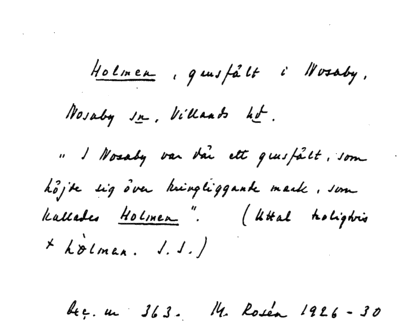 Holmen, grusfält i Nosaby,
Nosaby sn, Villands hd.
"I Nosaby var där ett grusfält, som
höjde sig över kringliggande mark, som
kallades Holmen". (Uttal troligtvis
+ hòlman. S.S.)
Acc. nr 363. M. Rosén 1926-30